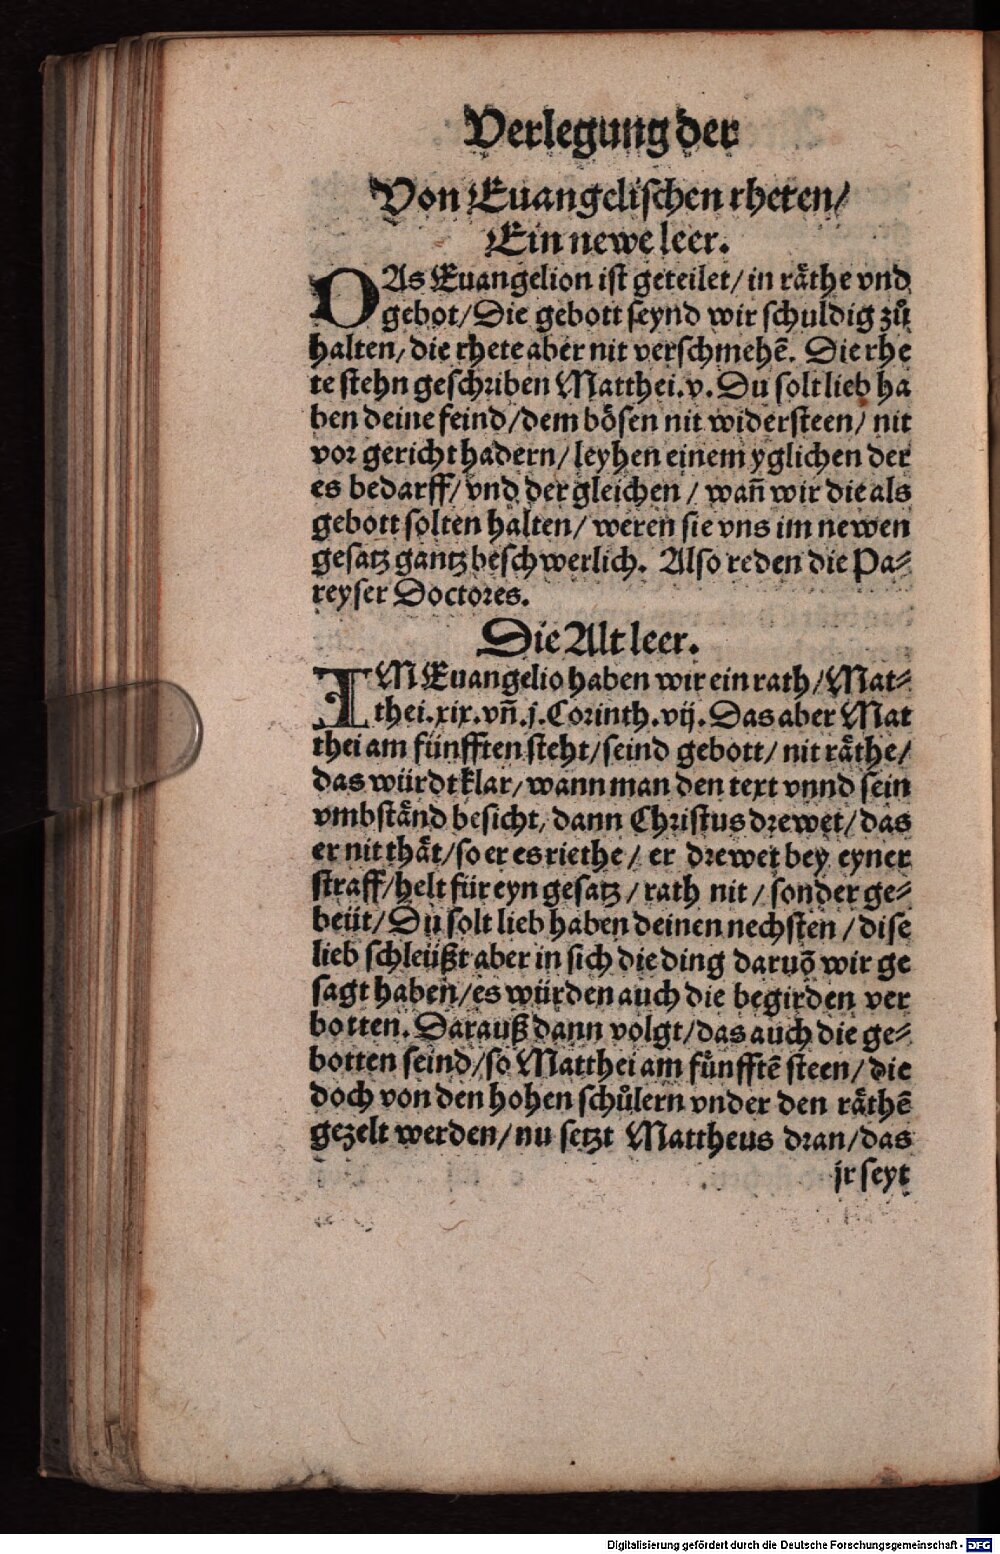 Verlegung der
Von Euangelischen rheten/
Ein newe leer.
DAs Euangelion ist geteilet/ in räthe vnd
gebot/ Die gebott seynd wir schuldig zů
halten/ die rhete aber nit verschmehē. Die rhe
te stehn geschriben Matthei.v. Du solt lieb ha
ben deine feind/ dem bösen nit widersteen/ nit
vor gericht hadern/ leyhen einem yglichen der
es bedarff/ vnd der gleichen / wañ wir die als
gebott solten halten/ weren sie vns im newen
gesatz gantz beschwerlich. Also reden die Pa⸗
reyser Doctores.
Die Alt leer.
IM Euangelio haben wir ein rath/ Mat⸗
thei.xix.vñ.j.Corinth.vij. Das aber Mat
thei am fünfften steht/ seind gebott/ nit räthe/
das würdt klar/ wann man den text vnnd sein
vmbständ besicht/ dann Christus drewet/ das
er nit thät/ so er es riethe/ er drewet bey eyner
straff/ helt für eyn gesatz / rath nit / sonder ge⸗
beüt/ Du solt lieb haben deinen nechsten / dise
lieb schleüßt aber in sich die ding daruō wir ge
sagt haben/ es würden auch die begirden ver
botten. Darauß dann volgt/ das auch die ge⸗
botten seind/ so Matthei am fünfftē steen/ die
doch von den hohen schůlern vnder den räthē
gezelt werden/ nu setzt Mattheus dran/ das
jr seyt
Digitalisierung gefördert durch die Deutsche Forschungsgemeinschaft - DFG